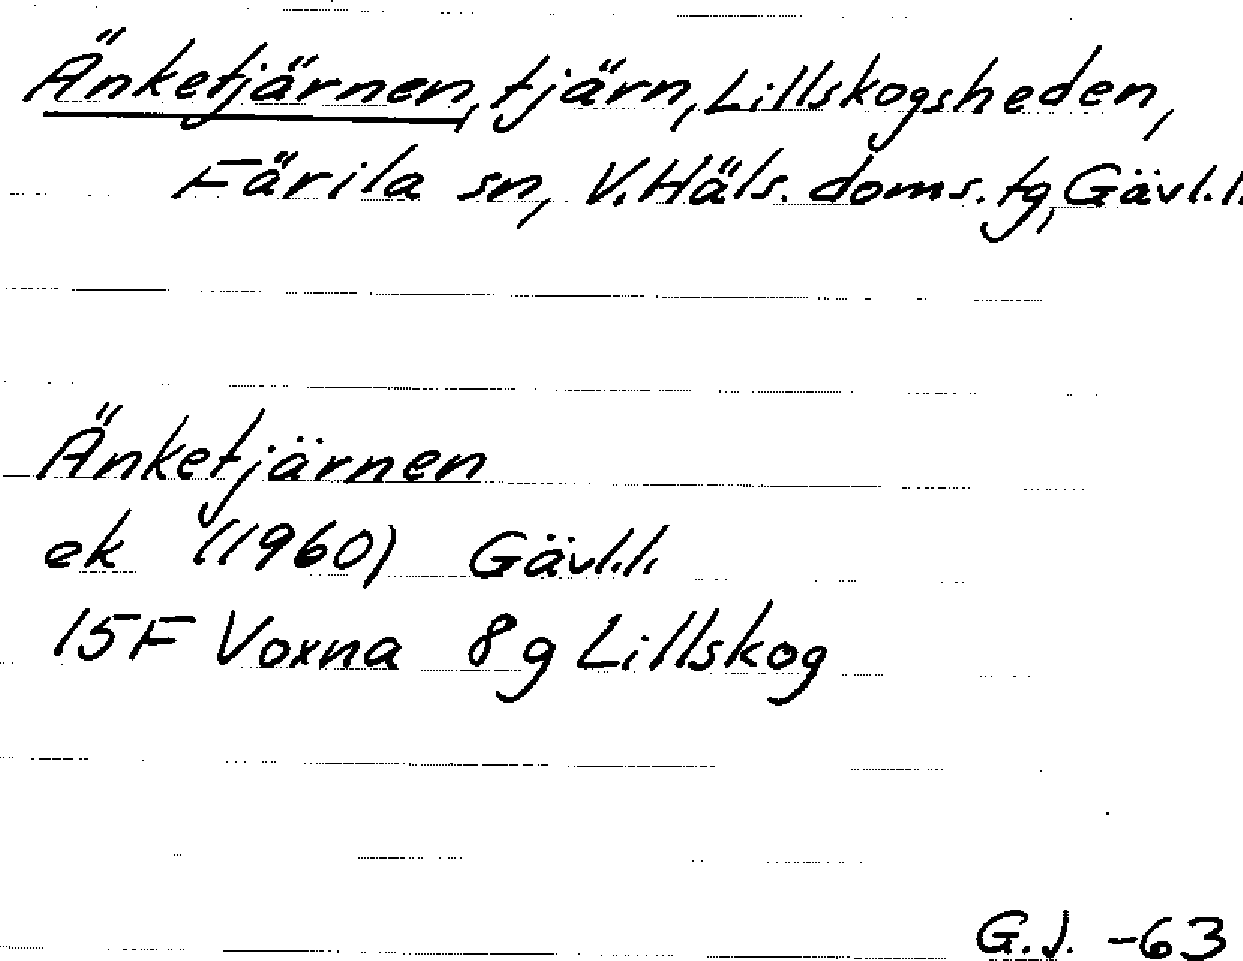 Änketjärnen, tjärn, Lillskogsheden,
Färila sn, V. Häls. doms. tg, Gävl. l.
Änketjärnen
ek (1960) Gävl. l.
15F Voxna 8g Lillskog
G.J. -63